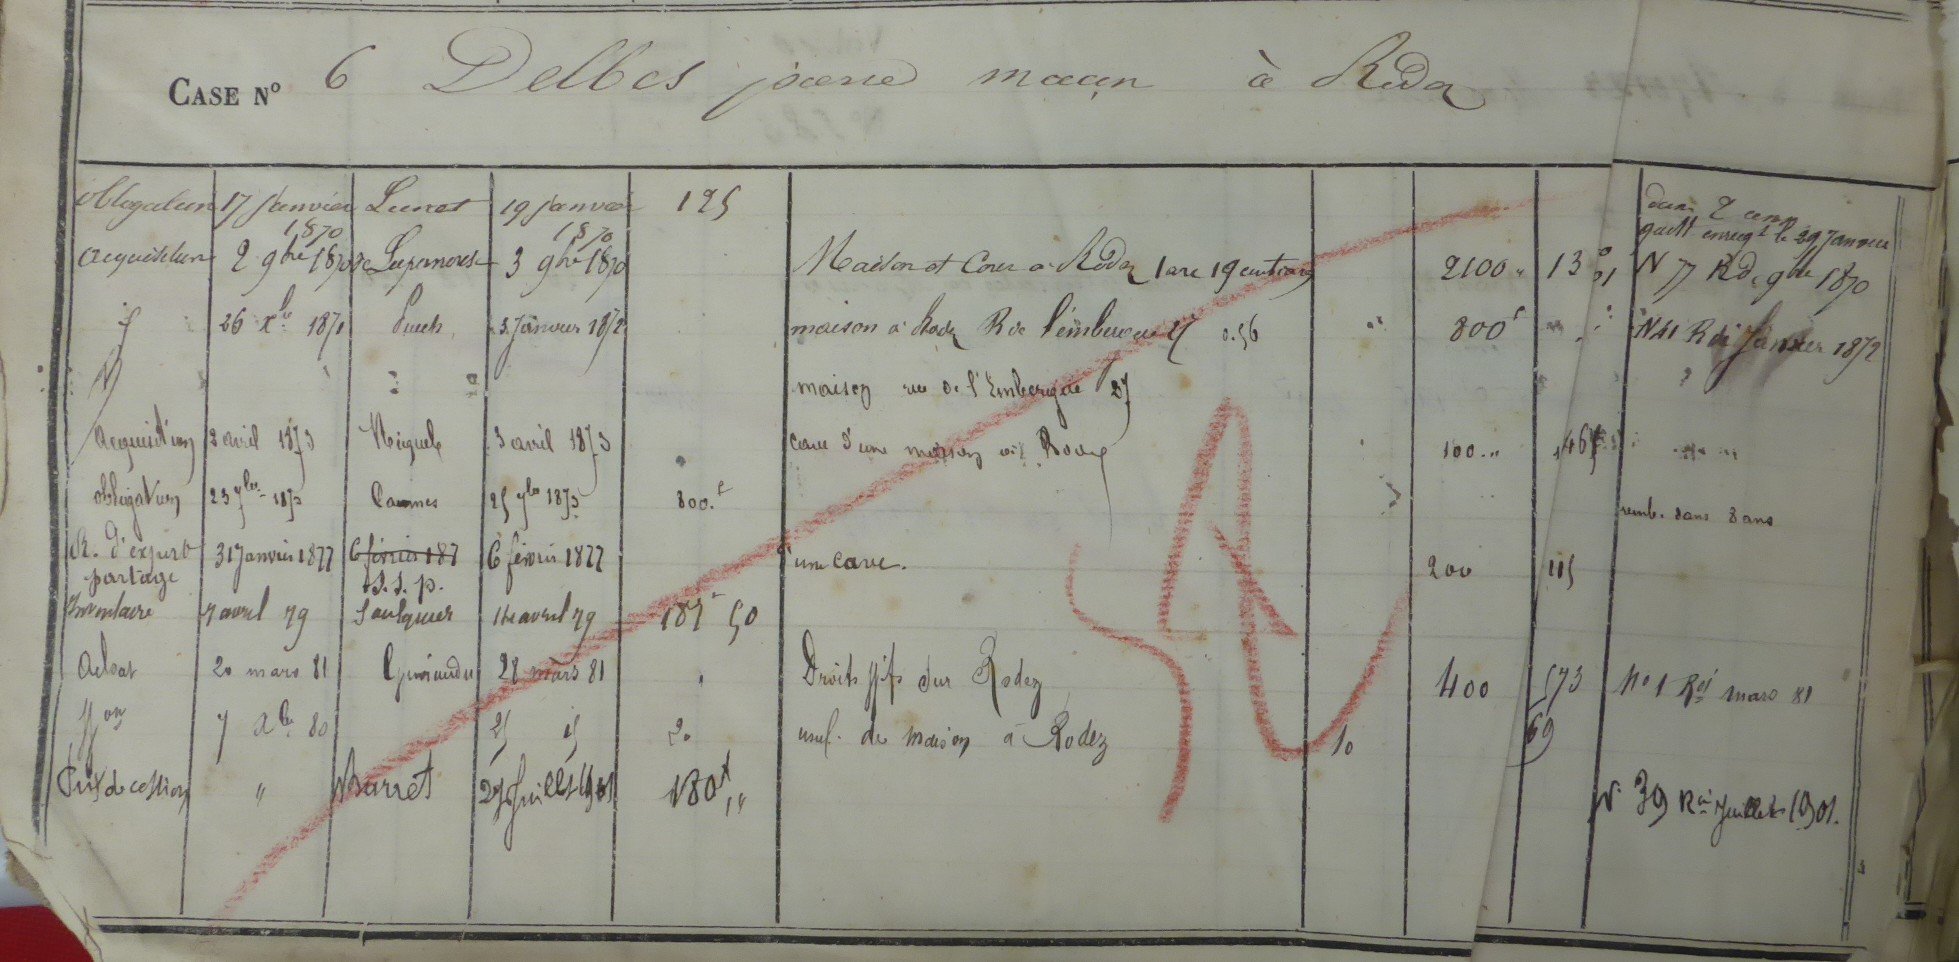 CASE Nº 6 Delbes pierre maçon à Rodez
obligation 17 Janvier 1870 Lunet 19 Janvier 1870 125 dans 2 ans quitt enreg. le 29 Janvier
acquisition 2 9bre 1870 3 9bre 1870 Maison et Cour à Rodez 1 are 19 centiares 2100 " 13 N 77 Rd. 9bre 1870
id 26 Xbre 1871 Puech 3 Janvier 1872 maison à Rodez R de l'embergue 27 0.56 " 800f N 41 Rd Janvier 1872
maison rue de l'Embergue 27
Acquisition 2 avril 1873 Miquel 3 avril 1873 cave d'une maison à Rodez 100 " 467
obligation 23 7bre 1873 Cannes 25 7bre 1873 800.f remb. dans 8 ans
R. d'expert partage 31 Janvier 1877 6 février 187 S. S. p. 6 février 1877 une cave. 200 115
Inventaire 7 avril 79 Foulquier 14 avril 79 187f 50
Achat 20 mars 81 28 mars 81 Droits sur Rodez 400 573 Nº 1 Rd mars 81
7 Xbre 80 20 usuf. de maison à Rodez 10 69
Prix de cession " Barret 27 Juillet 1901 180f " Nº 39 Rd Juillet 1901.